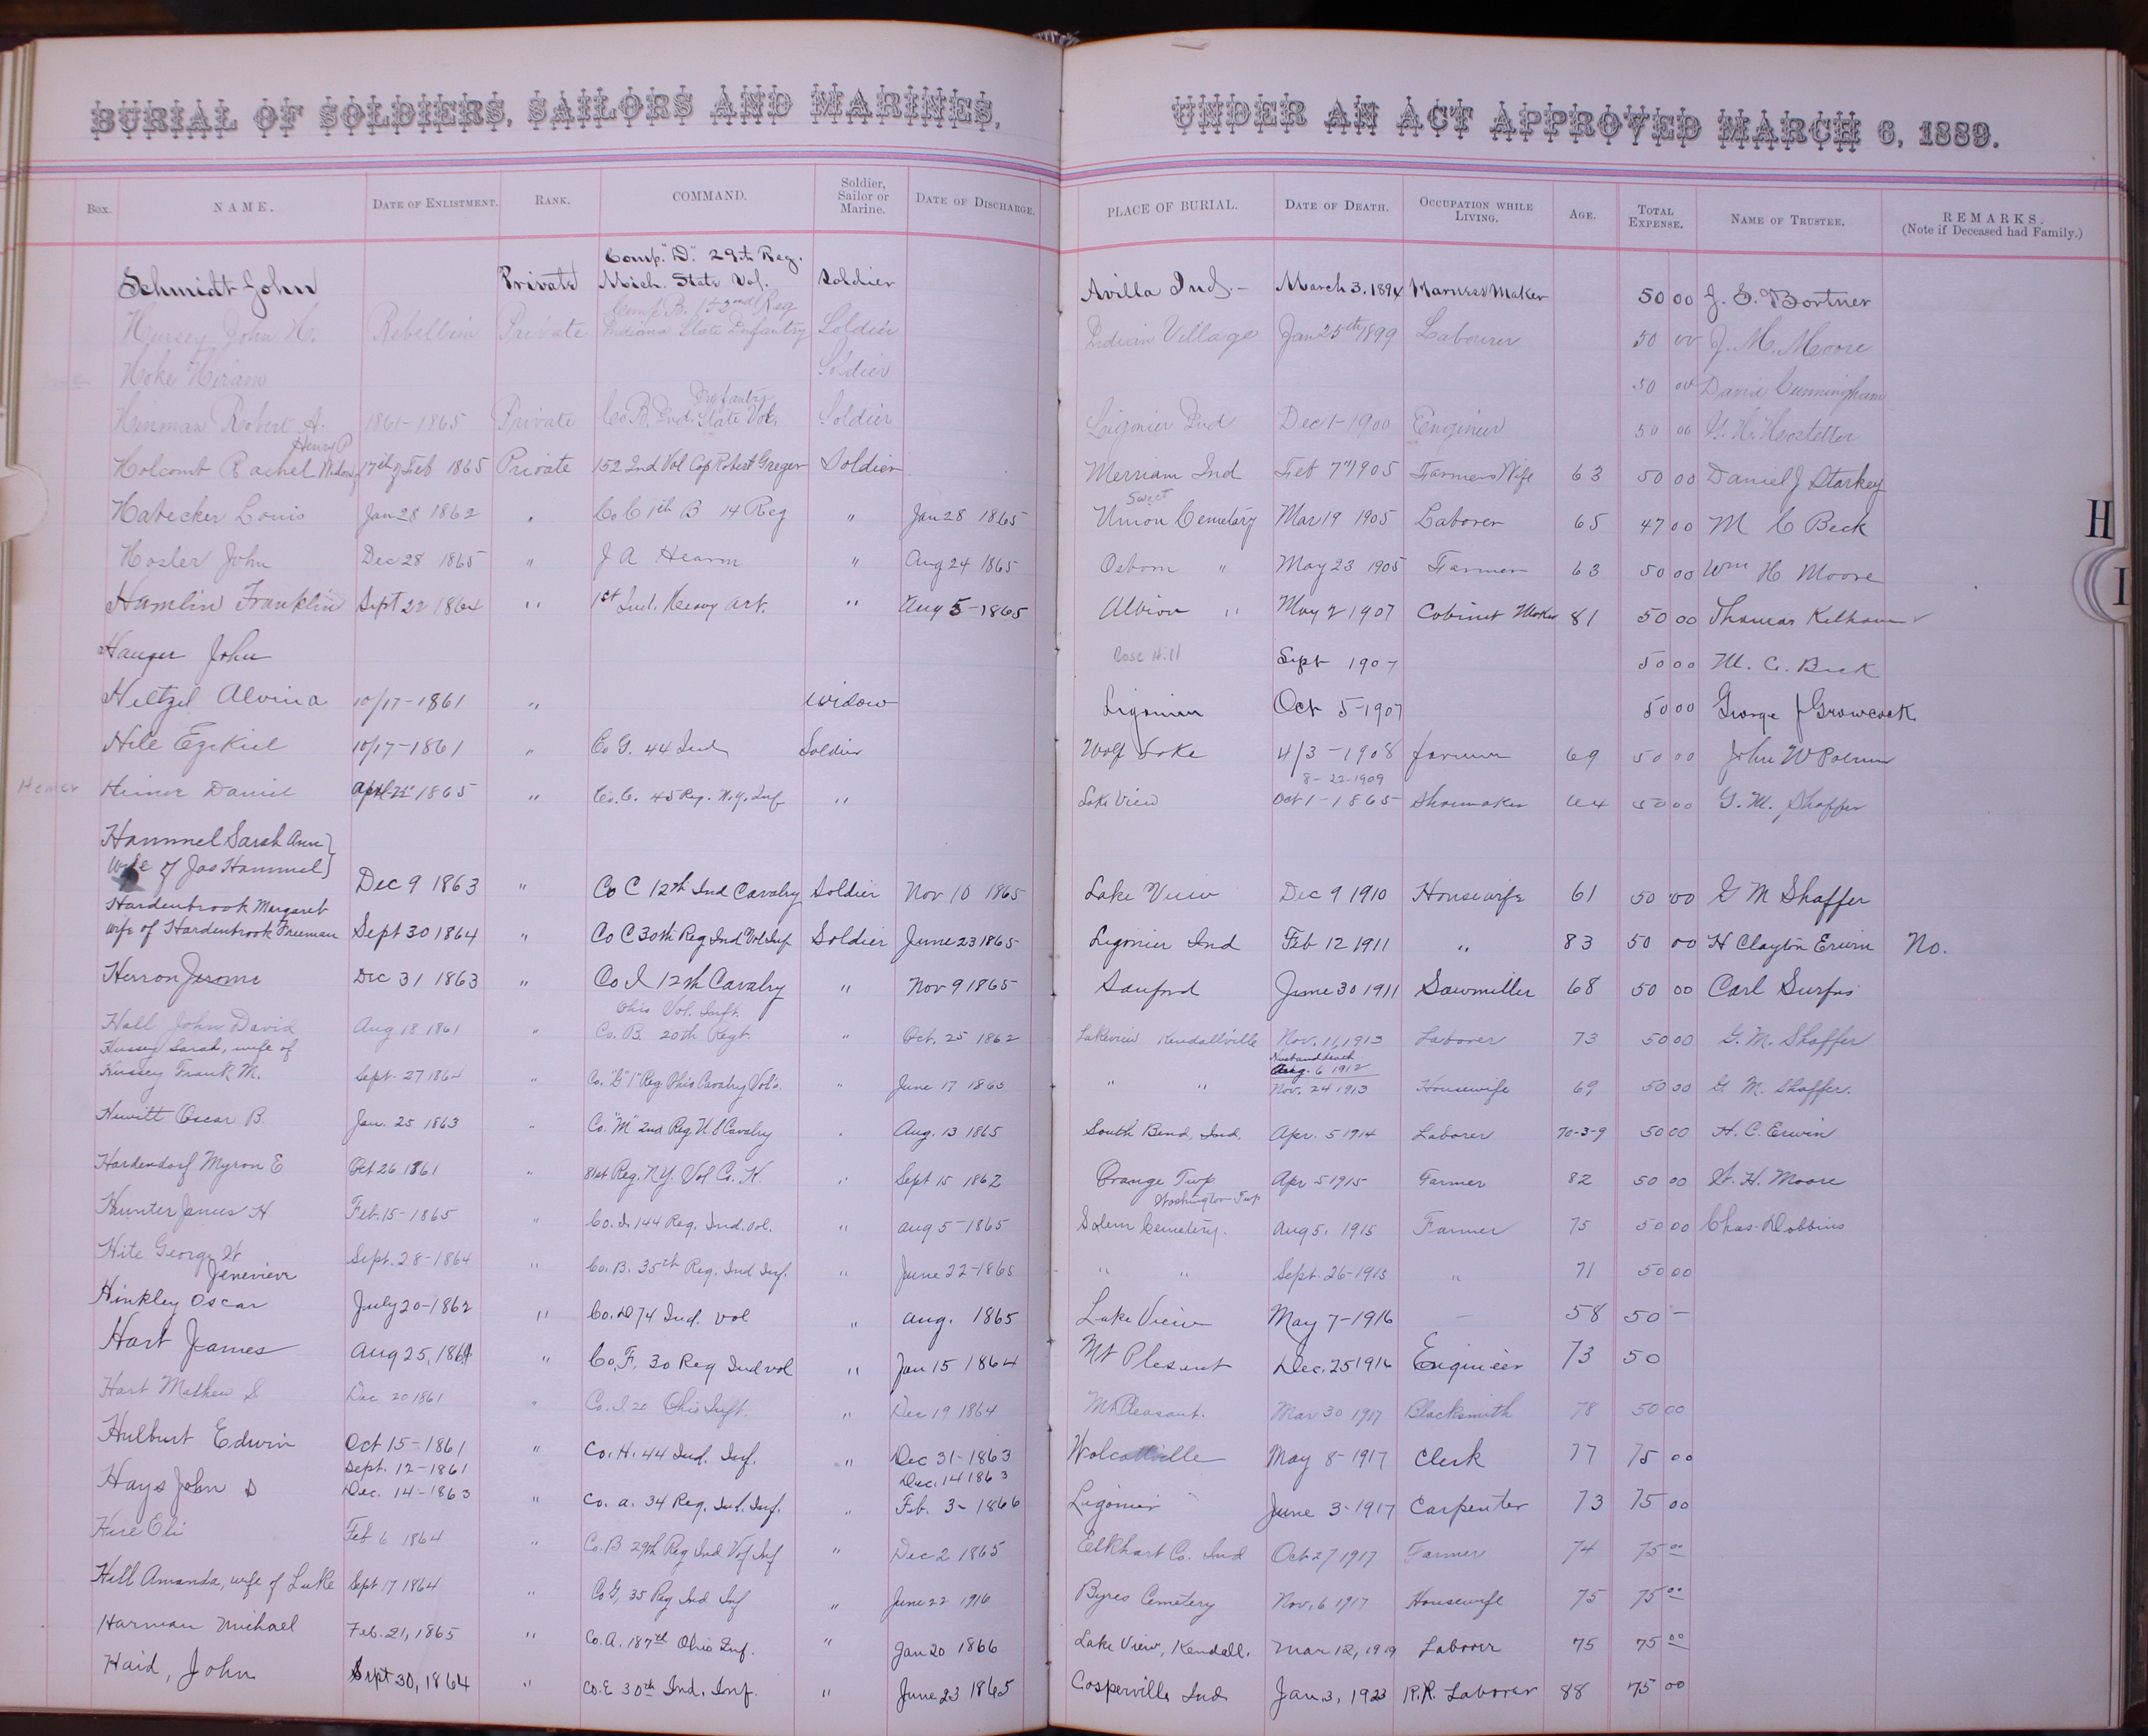 BURIAL OF SOLDIERS, SAILORS AND MARINES, UNDER AN ACT APPROVED MARCH 6, 1889.
Box. NAME. DATE OF ENLISTMENT. RANK. COMMAND. Soldier, Sailor or Marine. DATE OF DISCHARGE. PLACE OF BURIAL. DATE OF DEATH. OCCUPATION WHILE LIVING. AGE. TOTAL EXPENSE. NAME OF TRUSTEE. REMARKS. (Note if Deceased had Family.)
Comp. "D." 29th Reg.
Schmidt John Private Mich. State Vol. Soldier Avilla Ind. March 3. 1894 Harness Maker 50 00 J. E. Bortner
Comp B. 152nd Reg
Hursey John H. Rebellion Private Indiana State Infantry Soldier Indian Village Jan 25th 1899 Labourer 50 00 J. M. Moore
Hoke Hiram Soldier 50 00 David Cunningham
Infantry
Hinman Robert A. 1861-1865 Private Co B. Ind. State Vol. Soldier Ligonier Ind Dec 1-1900 Enginier 50 00 Hostetter
Henry P
Holcomb Rachel Widow of 17th of Feb 1865 Private 152 Ind Vol Cap Robert Greger Soldier Merriam Ind Feb 7" 1905 Farmers Wife 63 50 00 Daniel J Starkey
Sweet
Habecker Louis Jan 28 1862 " Co C 1th B 14 Reg " Jan 28 1865 Union Cemetary Mar 19 1905 Laborer 65 47 00 M C Beck
Hosler John Dec 28 1865 " J A Hearn " Aug 24 1865 Osborn " May 23 1905 Farmer 63 50 00 Wm H Moore
Hamlin Franklin Sept 22 1864 " 1st Ind. Heavy Art. " Aug 5-1865 Albion " May 2 1907 Cabinet Maker 81 50 00 Thomas Kelham
Hauger John Rose Hill Sept 1907 50 00 M. C. Beck
Heltzel Alvina 10/17-1861 " Widow Ligonier Oct 5-1907 50 00 George J Growcock
Hile Ezekiel 10/17-1861 " Co G. 44 Ind Soldier Wolf Lake 4/3-1908 farmer 69 50 00 John W
8-22-1909
Hemer Heiner Daniel Apl 22 1865 " Co. C. 45 Reg. N.Y. Inf " Lake View Oct 1-1865 Shoemaker 64 50 00 G. M. Shaffer
Hammel Sarah Ann
Wife of Jas Hammel Dec 9 1863 " Co C 12th Ind Cavalry Soldier Nov 10 1865 Lake View Dec 9 1910 Housewife 61 50 00 G M Shaffer
Hardenbrook Margaret
wife of Hardenbrook Freeman Sept 30 1864 " Co C 30th Reg Ind Vol Inf Soldier June 23 1865 Ligonier Ind Feb 12 1911 " 83 50 00 H Clayton Erwin No.
Herron Jerome Dec 31 1863 " Co I 12th Cavalry " Nov 9 1865 Sanford June 30 1911 Sawmiller 68 50 00 Carl Surfus
Ohio Vol. Inft.
Hall John David Aug 18 1861 " Co. B. 20th Regt. " Oct. 25 1862 Lakeview Kendallville Nov. 11, 1913 Laborer 73 50 00 G. M. Shaffer
Hussey Sarah, wife of Husband death Aug. 6 1912
Hussey Frank M. Sept. 27 1864 " Co. "G" 1" Reg. Ohio Cavalry Vols. " June 17 1865 " " Nov. 24 1913 Housewife 69 50 00 G. M. Shaffer.
Hewitt Oscar B. Jan. 25 1863 " Co. "M" 2nd Reg U.S Cavalry " Aug. 13 1865 South Bend, Ind. Apr. 5 1914 Laborer 70-3-9 50 00 H. C. Erwin
Hardendorf Myron E Oct 26 1861 " 81st Reg. N.Y. Vol Co. K. " Sept 15 1862 Orange Twp Apr 5 1915 Farmer 82 50 00 W. H. Moore
Washington Twp
Hunter James H Feb. 15-1865 " Co. I. 144 Reg. Ind. vol. " aug 5-1865 Salem Cemetery. Aug 5. 1915 Farmer 75 50 00 Chas. Dobbins
Hite George W Sept. 28-1864 " Co. B. 35th Reg. Ind Inf. " June 22-1865 " " Sept. 26-1915 " 71 50 00
Jenevievr
Hinkley Oscar July 20-1862 " Co. D 74 Ind. vol " aug. 1865 Lake View May 7-1916 — 58 50 —
Hart James Aug 25, 1861 " Co. F. 30 Reg Ind vol " Jan 15 1864 Mt Plesent Dec. 25 1916 Engineer 73 50
Hart Mathew S Dec 20 1861 " Co. I. 20 Ohio Inft. " Dec 19 1864 Mt Pleasant. Mar 30 1917 Blacksmith 78 50 00
Hulburt Edwin Oct 15-1861 " Co. H. 44 Ind. Inf. " Dec 31-1863 Wolcottville May 8-1917 Clerk 77 75 00
Sept. 12-1861 Dec. 14 1863
Hays John D Dec. 14-1863 " Co. a. 34 Reg. Ind. Inf. " Feb. 3-1866 Ligonier June 3-1917 Carpenter 73 75 00
Hire Eli Feb 6 1864 " Co. B 29th Reg Ind Vol Inf " Dec 2 1865 Elkhart Co. Ind Oct 27 1917 Farmer 74 75 00
Hill Amanda, wife of Luke Sept 17 1864 " Co G, 35 Reg Ind Inf " June 22 1916 Byres Cemetery Nov. 6 1917 Housewife 75 75 00
Harman Michael Feb. 21, 1865 " Co. A. 187th Ohio Inf. " Jan 20 1866 Lake View, Kendall. Mar 12, 1919 Laborer 75 75 00
Haid, John Sept 30, 1864 " Co. E 30th Ind. Inf. " June 23 1865 Cosperville Ind Jan 3, 1923 R.R. Laborer 88 75 00
H
I